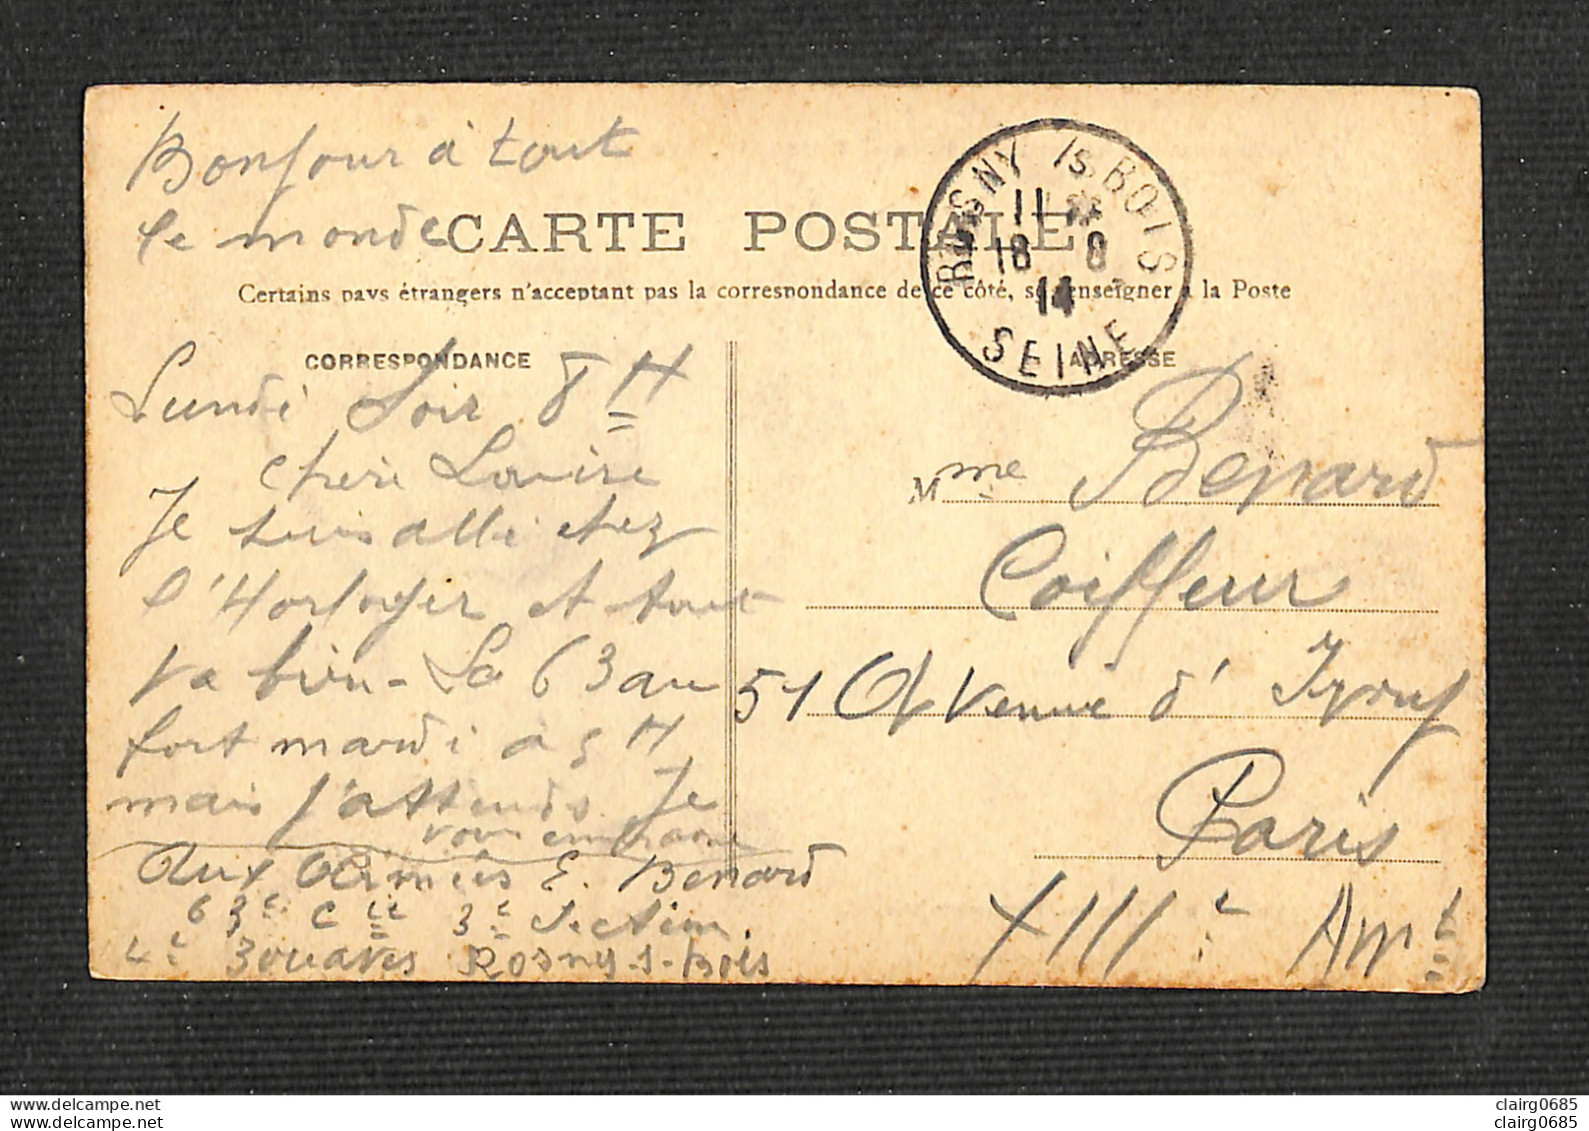 Bonjour à tout
le monde
CARTE POSTALE
Certains pays étrangers n'acceptent pas la correspondance de ce côté, se renseigner à la Poste
ROSNY Is BOIS
11 *
18 8
14
SEINE
CORRESPONDANCE
ADRESSE
Lundi Soir 8 H
Cheri Louise
Je suis allé chez
l'Horloger et tout
va bien - La 63 au
fort mardi à 5 H
mais j'attends. Je
vous embrasse
Aux Armées E. Benard
63e Cie 3e Section
4e Zouaves Rosny-s-Bois
Mme Benard
Coiffeur
51 Avenue d'
Paris
XIIIe Arrt
www.delcampe.net
www.delcampe.net
clairg0685
clairg0685